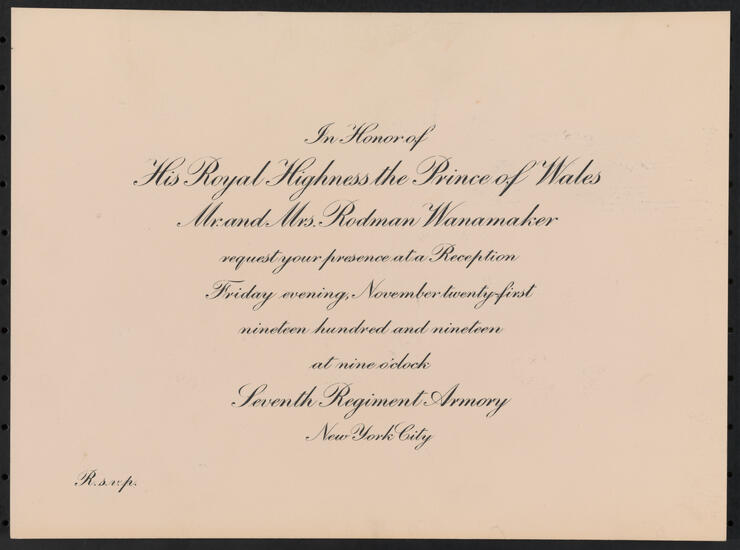 In Honor of
His Royal Highness the Prince of Wales
Mr. and Mrs. Rodman Wanamaker
request your presence at a Reception
Friday evening, November twenty-first
nineteen hundred and nineteen
at nine o'clock
Seventh Regiment Armory
New York City
R.s.v.p.